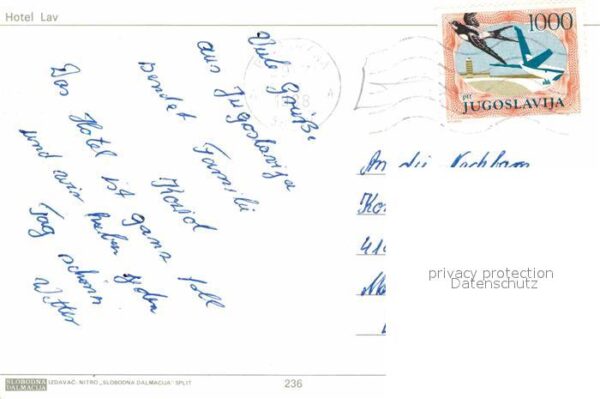 Hotel Lav
Viele Grüße
aus Jugoslavija
sendet Familie
Kozid
Das Hotel ist ganz toll
und wir haben jeden
Tag schönn
Wetter
1000
ptt
JUGOSLAVIJA
An die Nachbarn
Ko
414
privacy protection
Datenschutz
SLOBODNA
DALMACIJA
IZDAVAČ: NITRO „SLOBODNA DALMACIJA" SPLIT
236